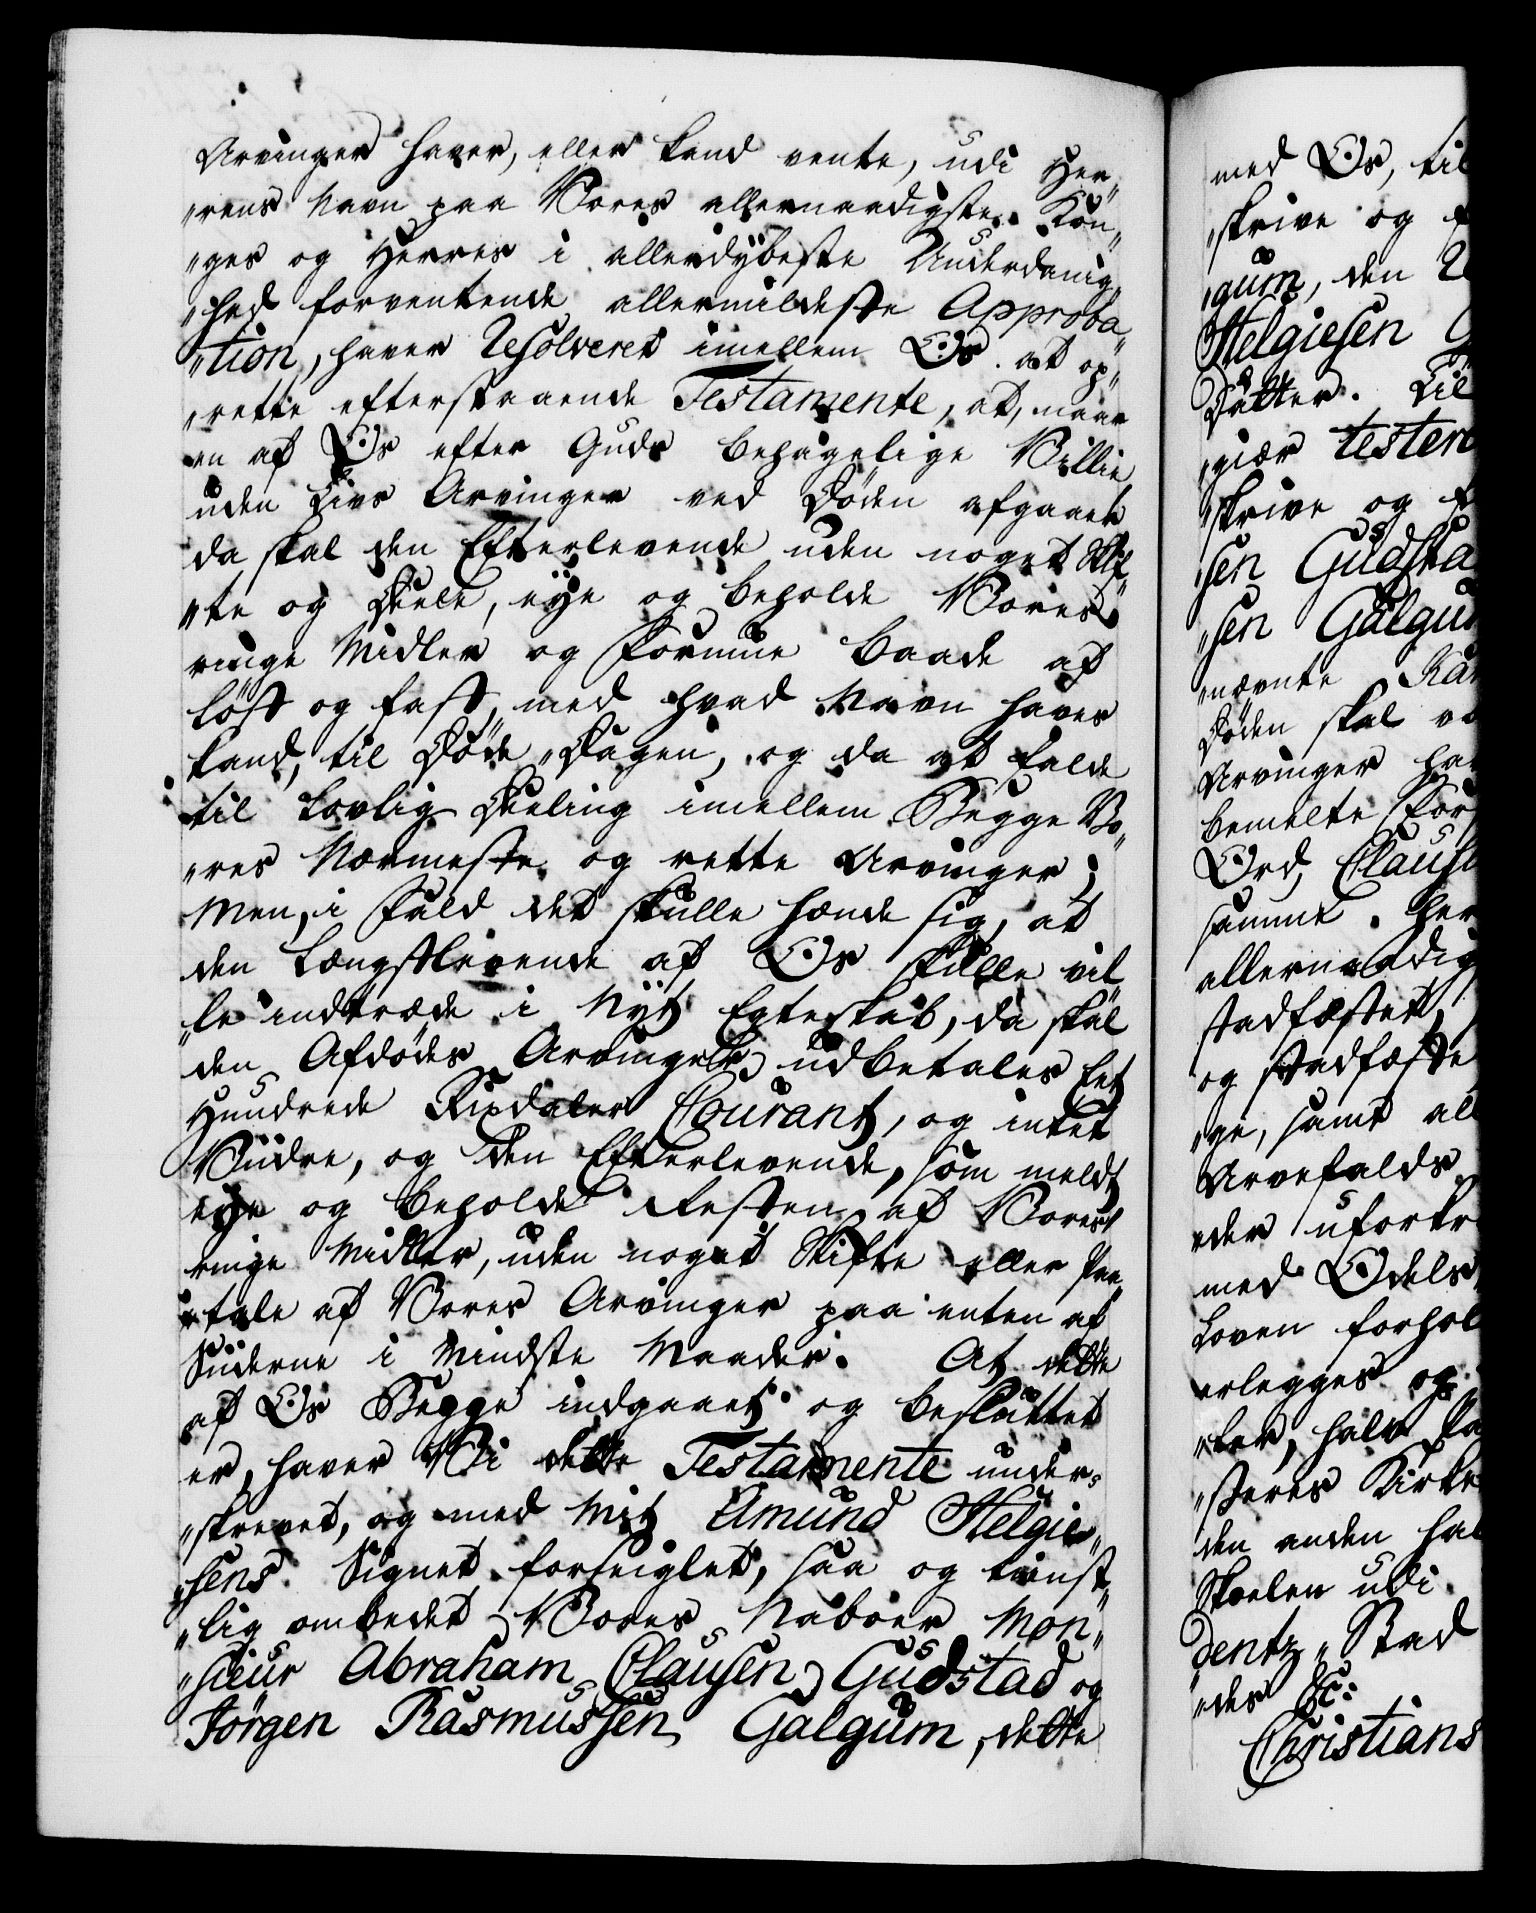 Arvinger haver, eller kand vente, udi Her„
„rens Navn paa Vores allernaadigste Kon„
„ges og Herres i allerdÿbeste Underdanig„
„hed forventende allermildeste Approba„
„tion, haver Resolveret imellem Os at op„
„rette efterstaaende Testamente, at, naar
en af Os efter Guds behagelige Villie
uden Livs Arvinger ved Døden afgaaer
da skal den Efterlevende uden noget Skif„
„te og Deele, eÿe og beholde Vores
ringe Midler og Formue baade af
løst og fast, med hvad Navn haves
kand, til Døde„Dagen, og da at falde
til Lovlig Deeling imellem Begge Vo„
„res Nærmeste og rette Arvinger;
Men, i Fald det skulle hænde sig, at
den Længstlevende af Os skulle vil„
„le indtræde i Nÿt Egteskab, da skal
den Afdødes Arvinger udbetales Eet
Hundrede Rixdaler Courant, og intet
Viidre, og den Efterlevende, som meldt
eÿe og beholde Resten af Vores
ringe Midler, uden noget Skifte eller Paa„
„tale af Vores Arvinger paa enten af
Siiderne i Mindste Maader. At dette
af Os Begge indgaaet og besluttet
er, haver Vi dette Testamente under„
„skrevet, og med Mit Amund Helgie„
„sens Signet forseiglet, saa og tienst„
„lig ombedet Vores Naboer Mon„
„sieur Abraham Clausen Gudstad og
Jørgen Rasmussen Galgum, dette
med Os, til
„skrive og
„gum, den
Helgiesen
Datter. Til
„giær testere
„skrive og
sen Gudsta
„sen Galgum
„nævnte
Døden skal
Arvinger
bemelte For
Ord, Clausu
samme
allernaadig
stadfæstet,
og stadfæste
„ge, samt all
Arvefalds
„der ufortr
med Odels
Loven forhol
erlegges og
„ter, halv
„steres Kirke
den anden hal
Skoelen udi
Dentz„Stad
„des &c:
Christians